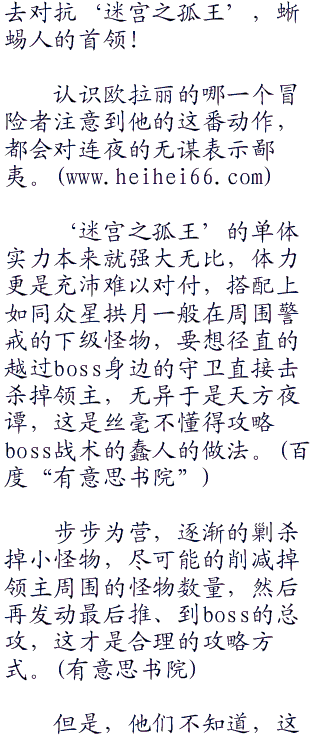 去对抗‘迷宫之孤王’，蜥
蜴人的首领！
认识欧拉丽的哪一个冒
险者注意到他的这番动作，
都会对连夜的无谋表示鄙
夷。(www.heihei66.com)
‘迷宫之孤王’的单体
实力本来就强大无比，体力
更是充沛难以对付，搭配上
如同众星拱月一般在周围警
戒的下级怪物，要想径直的
越过boss身边的守卫直接击
杀掉领主，无异于是天方夜
谭，这是丝毫不懂得攻略
boss战术的蠢人的做法。(百
度“有意思书院”)
步步为营，逐渐的剿杀
掉小怪物，尽可能的削减掉
领主周围的怪物数量，然后
再发动最后推、到boss的总
攻，这才是合理的攻略方
式。(有意思书院)
但是，他们不知道，这